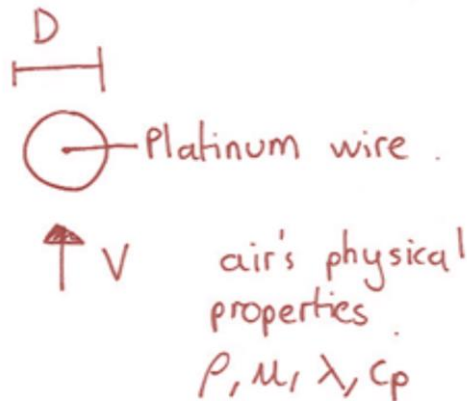 D
Platinum wire.
V
air's physical
properties.
ρ, μ, λ, Cp